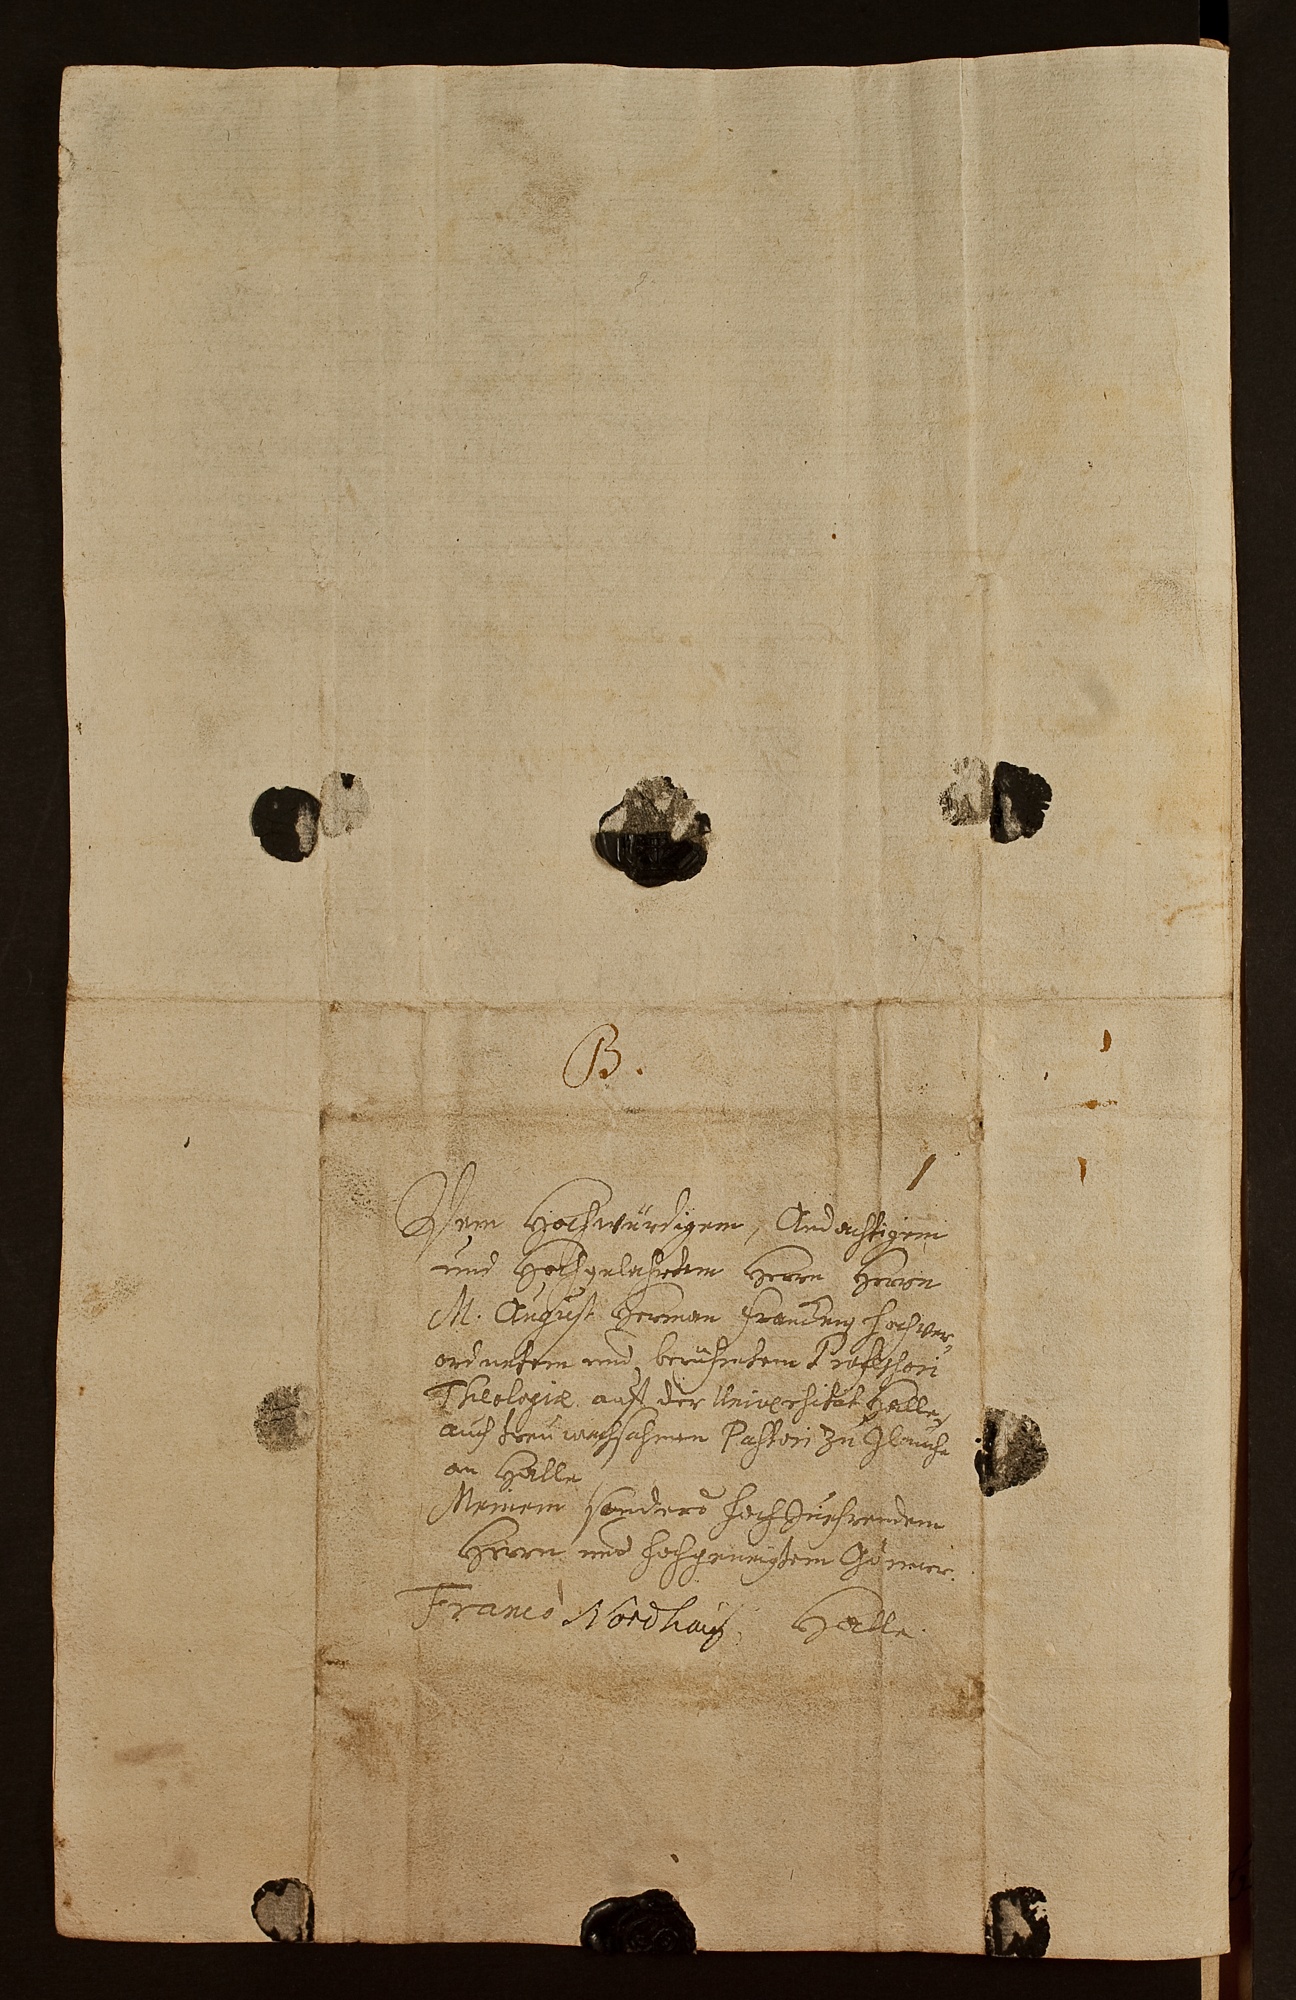 B.
Dem Hochwürdigem, Andachtigem
und Hochgelahrtem Herrn Herrn
M. August Herman Francken hochver-
ordnetem und berühmtem Professori
Theologiæ auff der Universitat Halle,
auch treu wachsahmen Pastori zu Glauche
an Halle
Meinem sonders hochzuehrendem
Herrn und hochgeneigtem Gönner.
Franco Nordhaus. Halle.